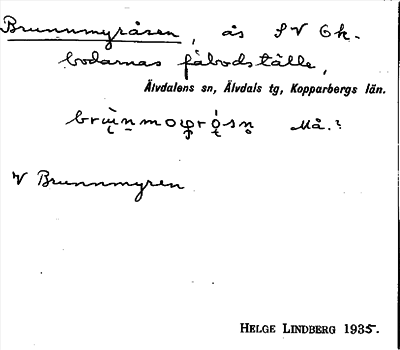 Brunnmyråsen, ås SV Gk-
bodarnas fäbodställe,
Älvdalens sn, Älvdals tg, Kopparbergs län.
Må.?
V Brunnmyren
HELGE LINDBERG 1935.